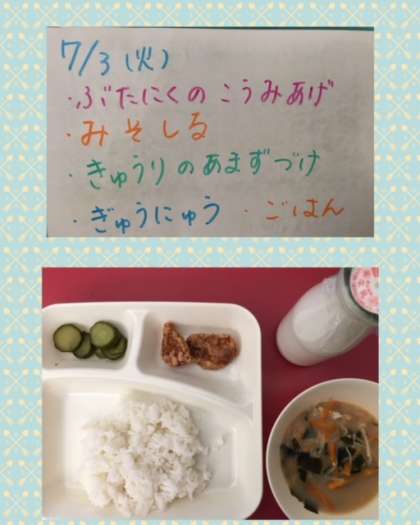 7/3(火)
・ぶたにくのこうみあげ
・みそしる
・きゅうりのあまずづけ
・ぎゅうにゅう ・ごはん